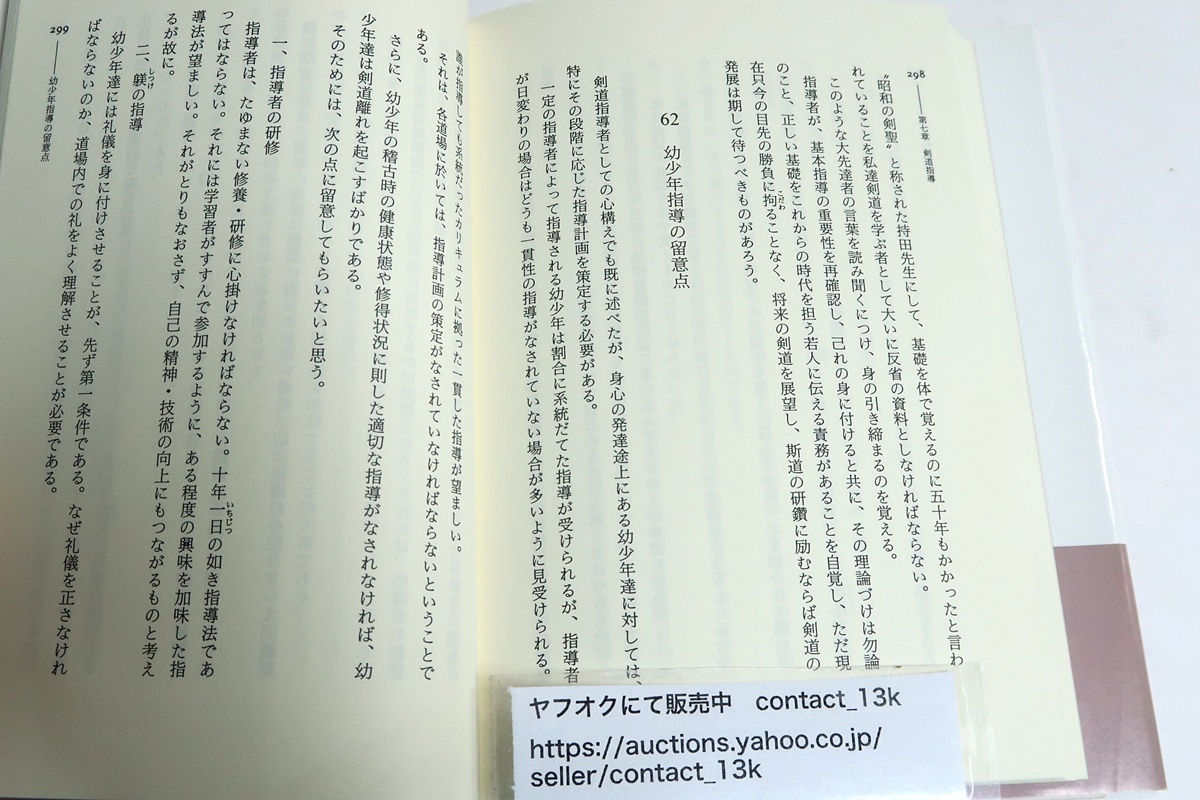 298
第七章　剣道指導
〝昭和の剣聖〟と称された持田先生にして、基礎を体で覚えるのに五十年もかかったと言わ
れていることを私達剣道を学ぶ者として大いに反省の資料としなければならない。
このような大先達者の言葉を読み聞くにつけ、身の引き締まるのを覚える。
指導者が、基本指導の重要性を再確認し、己れの身に付けると共に、その理論づけは勿論
のこと、正しい基礎をこれからの時代を担う若人に伝える責務があることを自覚し、ただ現
在只今の目先の勝負に拘ることなく、将来の剣道を展望し、斯道の研鑽に励むならば剣道の
こだわ
発展は期して待つべきものがあろう。
62　幼少年指導の留意点
剣道指導者としての心構えでも既に述べたが、身心の発達途上にある幼少年達に対しては、
特にその段階に応じた指導計画を策定する必要がある。
一定の指導者によって指導される幼少年は割合に系統だてた指導が受けられるが、指導者
が日変わりの場合はどうも一貫性の指導がなされていない場合が多いように見受けられる。
誰が指導しても系統だったカリキュラムに拠った一貫した指導が望ましい。
それは、各道場に於いては、指導計画の策定がなされていなければならないということで
ある。
さらに、幼少年の稽古時の健康状態や修得状況に則した適切な指導がなされなければ、幼
少年達は剣道離れを起こすばかりである。
そのためには、次の点に留意してもらいたいと思う。
一、指導者の研修
指導者は、たゆまない修養・研修に心掛けなければならない。十年一日の如き指導法であ
いちじつ
ってはならない。それには学習者がすすんで参加するように、ある程度の興味を加味した指
導法が望ましい。それがとりもなおさず、自己の精神・技術の向上にもつながるものと考え
るが故に。
二、躾の指導
しつけ
幼少年達には礼儀を身に付けさせることが、先ず第一条件である。なぜ礼儀を正さなけれ
ばならないのか、道場内での礼をよく理解させることが必要である。
299
幼少年指導の留意点
ヤフオクにて販売中　contact_13k
https://auctions.yahoo.co.jp/
seller/contact_13k